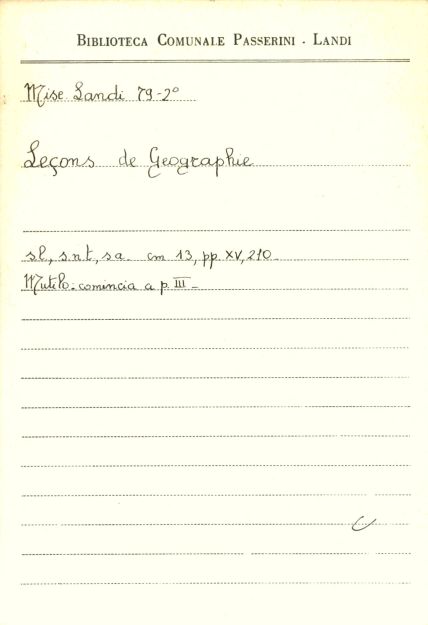 BIBLIOTECA COMUNALE PASSERINI - LANDI
Misc. Landi 79-2°
Leçons de Geographie
s.l., s.n.t., s.a. cm 13, pp. XV, 210.
Mutilo - comincia a p. III -